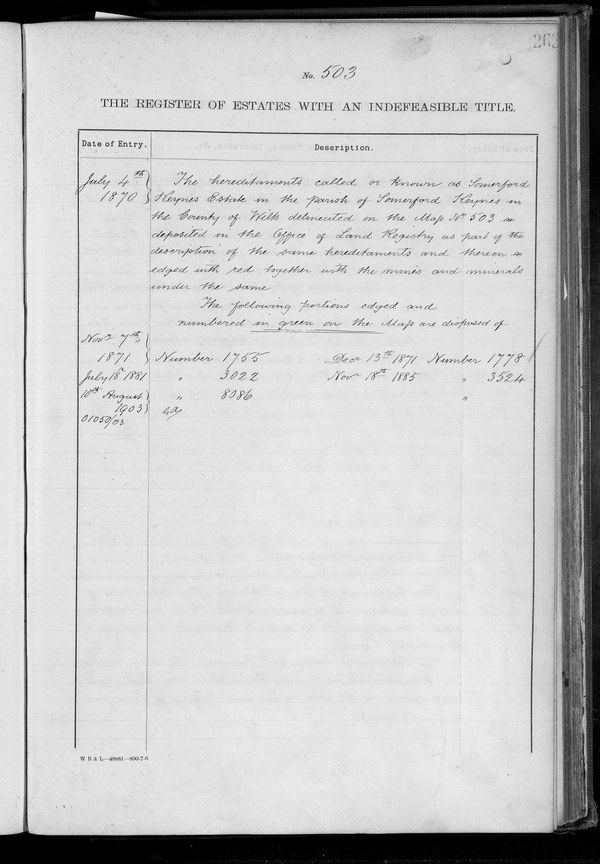 263
No. 503
THE REGISTER OF ESTATES WITH AN INDEFEASIBLE TITLE.
Date of Entry.
Description.
July 4th 1870
The hereditaments called or known as Somerford
Keynes Estate in the parish of Somerford Keynes in
the County of Wilts delineated on the Map No 503
deposited in the Office of Land Registry as part of the
description of the same hereditaments and thereon
edged with red together with the mines and minerals
under the same
The following portions edged and
numbered in green on the Map are disposed of
Novr 7th 1871 Number 1755 Decr 13th 1871 Number 1778
July 18 1881 " 3022 Novr 18th 1885 " 3524
10th August 1903 " 8086 "
01050/03
W B & L—48881—800-7-6